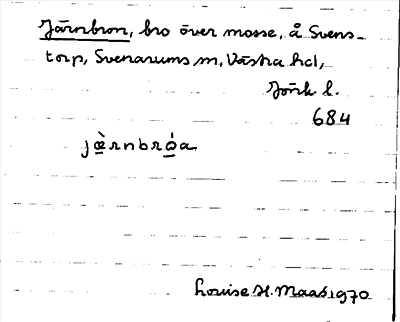 Järnbron, bro över mosse, å Svens-
torp, Svenarums sn, Västra hd,
Jönk l.
684
jæ̀rnbróa
Louise H. Maas 1970